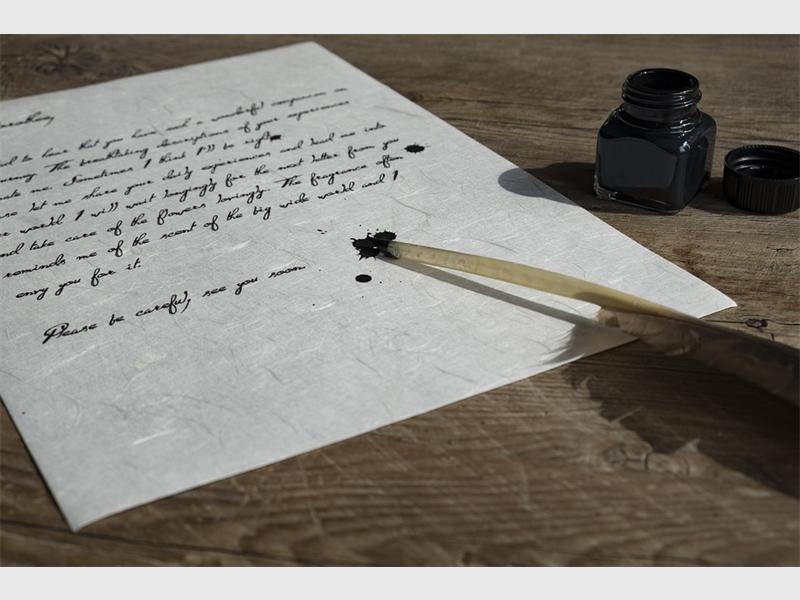 to hear that you have such a wonderful companion on
The breathtaking descriptions of your experiences
me. Sometimes I think I'll be right
let me share your daily experiences and lead me into
world I will wait longingly for the next letter from you
and take care of the flowers lovingly. The fragrance often
reminds me of the scent of the big wide world and I
envy you for it.
Please be careful, see you soon